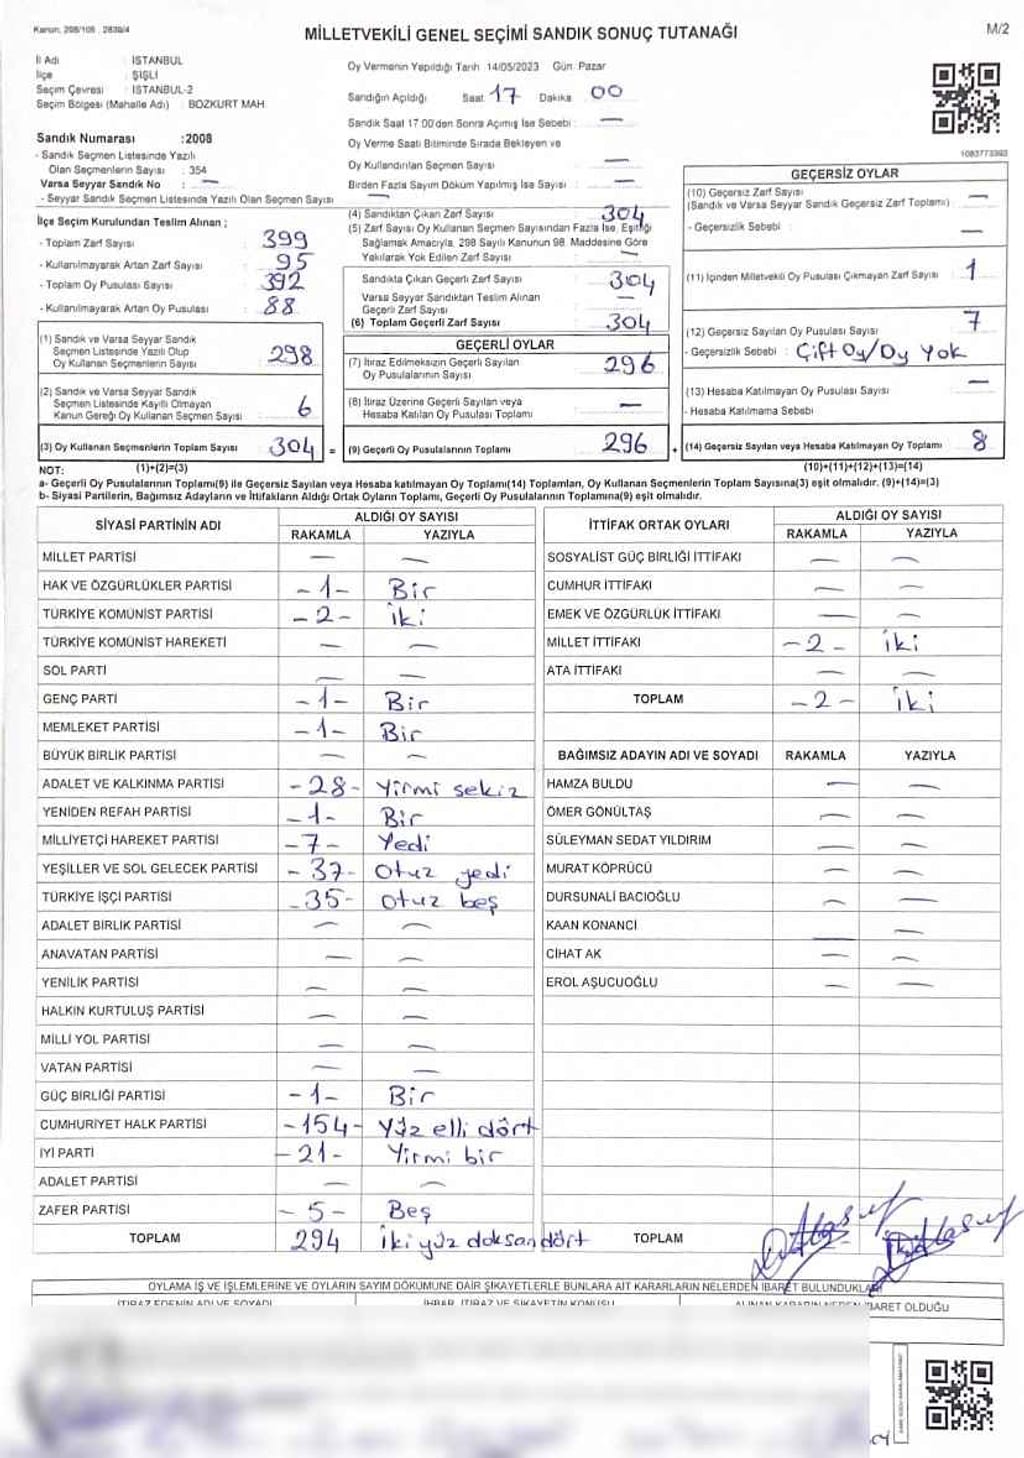 Kanun: 298/105 , 2839/4
MİLLETVEKİLİ GENEL SEÇİMİ SANDIK SONUÇ TUTANAĞI
M/2
İl Adı : İSTANBUL
İlçe : ŞİŞLİ
Seçim Çevresi : İSTANBUL-2
Seçim Bölgesi (Mahalle Adı) : BOZKURT MAH.
Sandık Numarası :2008
- Sandık Seçmen Listesinde Yazılı
Olan Seçmenlerin Sayısı : 354
Varsa Seyyar Sandık No : —
- Seyyar Sandık Seçmen Listesinde Yazılı Olan Seçmen Sayısı —
Oy Vermenin Yapıldığı Tarih 14/05/2023 Gün: Pazar
Sandığın Açıldığı Saat 17 Dakika 00
Sandık Saat 17:00'den Sonra Açımış İse Sebebi : —
Oy Verme Saati Bitiminde Sırada Bekleyen ve
Oy Kullandırılan Seçmen Sayısı —
Birden Fazla Sayım Döküm Yapılmış İse Sayısı : —
1083773393
İlçe Seçim Kurulundan Teslim Alınan ;
- Toplam Zarf Sayısı 399
- Kullanılmayarak Artan Zarf Sayısı 95
- Toplam Oy Pusulası Sayısı 392
- Kullanılmayarak Artan Oy Pusulası 88
(1) Sandık ve Varsa Seyyar Sandık
Seçmen Listesinde Yazılı Olup
Oy Kullanan Seçmenlerin Sayısı 298
(2) Sandık ve Varsa Seyyar Sandık
Seçmen Listesinde Kayıtlı Olmayan
Kanun Gereği Oy Kullanan Seçmen Sayısı 6
(3) Oy Kullanan Seçmenlerin Toplam Sayısı 304 =
(4) Sandıktan Çıkan Zarf Sayısı 304
(5) Zarf Sayısı Oy Kullanan Seçmen Sayısından Fazla İse, Eşitliği
Sağlamak Amacıyla, 298 Sayılı Kanunun 98. Maddesine Göre
Yakılarak Yok Edilen Zarf Sayısı —
Sandıkta Çıkan Geçerli Zarf Sayısı 304
Varsa Seyyar Sandıktan Teslim Alınan
Geçerli Zarf Sayısı —
(6) Toplam Geçerli Zarf Sayısı 304
GEÇERLİ OYLAR
(7) İtiraz Edilmeksizin Geçerli Sayılan
Oy Pusulalarının Sayısı 296
(8) İtiraz Üzerine Geçerli Sayılan veya
Hesaba Katılan Oy Pusulası Toplamı —
(9) Geçerli Oy Pusulalarının Toplamı 296 +
GEÇERSİZ OYLAR
(10) Geçersiz Zarf Sayısı —
(Sandık ve Varsa Seyyar Sandık Geçersiz Zarf Toplamı) :
- Geçersizlik Sebebi : —
(11) İçinden Milletvekili Oy Pusulası Çıkmayan Zarf Sayısı : 1
(12) Geçersiz Sayılan Oy Pusulası Sayısı : 7
- Geçersizlik Sebebi : Çift Oy/Oy Yok
(13) Hesaba Katılmayan Oy Pusulası Sayısı —
- Hesaba Katılmama Sebebi
(14) Geçersiz Sayılan veya Hesaba Katılmayan Oy Toplamı 8
NOT: (1)+(2)=(3) (10)+(11)+(12)+(13)=(14)
a- Geçerli Oy Pusulalarının Toplamı(9) ile Geçersiz Sayılan veya Hesaba katılmayan Oy Toplamı(14) Toplamları, Oy Kullanan Seçmenlerin Toplam Sayısına(3) eşit olmalıdır. (9)+(14)=(3)
b- Siyasi Partilerin, Bağımsız Adayların ve İttifakların Aldığı Ortak Oyların Toplamı, Geçerli Oy Pusulalarının Toplamına(9) eşit olmalıdır.
SİYASİ PARTİNİN ADI ALDIĞI OY SAYISI
RAKAMLA YAZIYLA
MİLLET PARTİSİ — —
HAK VE ÖZGÜRLÜKLER PARTİSİ -1- Bir
TÜRKİYE KOMÜNİST PARTİSİ -2- iki
TÜRKİYE KOMÜNİST HAREKETİ — —
SOL PARTİ — —
GENÇ PARTİ -1- Bir
MEMLEKET PARTİSİ -1- Bir
BÜYÜK BİRLİK PARTİSİ — —
ADALET VE KALKINMA PARTİSİ -28- Yirmi sekiz
YENİDEN REFAH PARTİSİ -1- Bir
MİLLİYETÇİ HAREKET PARTİSİ -7- Yedi
YEŞİLLER VE SOL GELECEK PARTİSİ -37- Otuz yedi
TÜRKİYE İŞÇİ PARTİSİ -35- Otuz beş
ADALET BİRLİK PARTİSİ — —
ANAVATAN PARTİSİ — —
YENİLİK PARTİSİ — —
HALKIN KURTULUŞ PARTİSİ — —
MİLLİ YOL PARTİSİ — —
VATAN PARTİSİ — —
GÜÇ BİRLİĞİ PARTİSİ -1- Bir
CUMHURİYET HALK PARTİSİ -154- Yüz elli dört
İYİ PARTİ -21- Yirmi bir
ADALET PARTİSİ — —
ZAFER PARTİSİ -5- Beş
TOPLAM 294 iki yüz doksan dört
İTTİFAK ORTAK OYLARI ALDIĞI OY SAYISI
RAKAMLA YAZIYLA
SOSYALİST GÜÇ BİRLİĞİ İTTİFAKI — —
CUMHUR İTTİFAKI — —
EMEK VE ÖZGÜRLÜK İTTİFAKI — —
MİLLET İTTİFAKI -2- iki
ATA İTTİFAKI — —
TOPLAM -2- iki
BAĞIMSIZ ADAYIN ADI VE SOYADI RAKAMLA YAZIYLA
HAMZA BULDU — —
ÖMER GÖNÜLTAŞ — —
SÜLEYMAN SEDAT YILDIRIM — —
MURAT KÖPRÜCÜ — —
DURSUNALİ BACIOĞLU — —
KAAN KONANCİ — —
CİHAT AK — —
EROL AŞUCUOĞLU — —
TOPLAM
OYLAMA İŞ VE İŞLEMLERİNE VE OYLARIN SAYIM DÖKÜMÜNE DAİR ŞİKAYETLERLE BUNLARA AİT KARARLARIN NELERDEN İBARET BULUNDUKLARI
İTİRAZ EDENİN ADI VE SOYADI İHBAR, İTİRAZ VE ŞİKAYETİN KONUSU ALINAN KARARIN NEDEN İBARET OLDUĞU